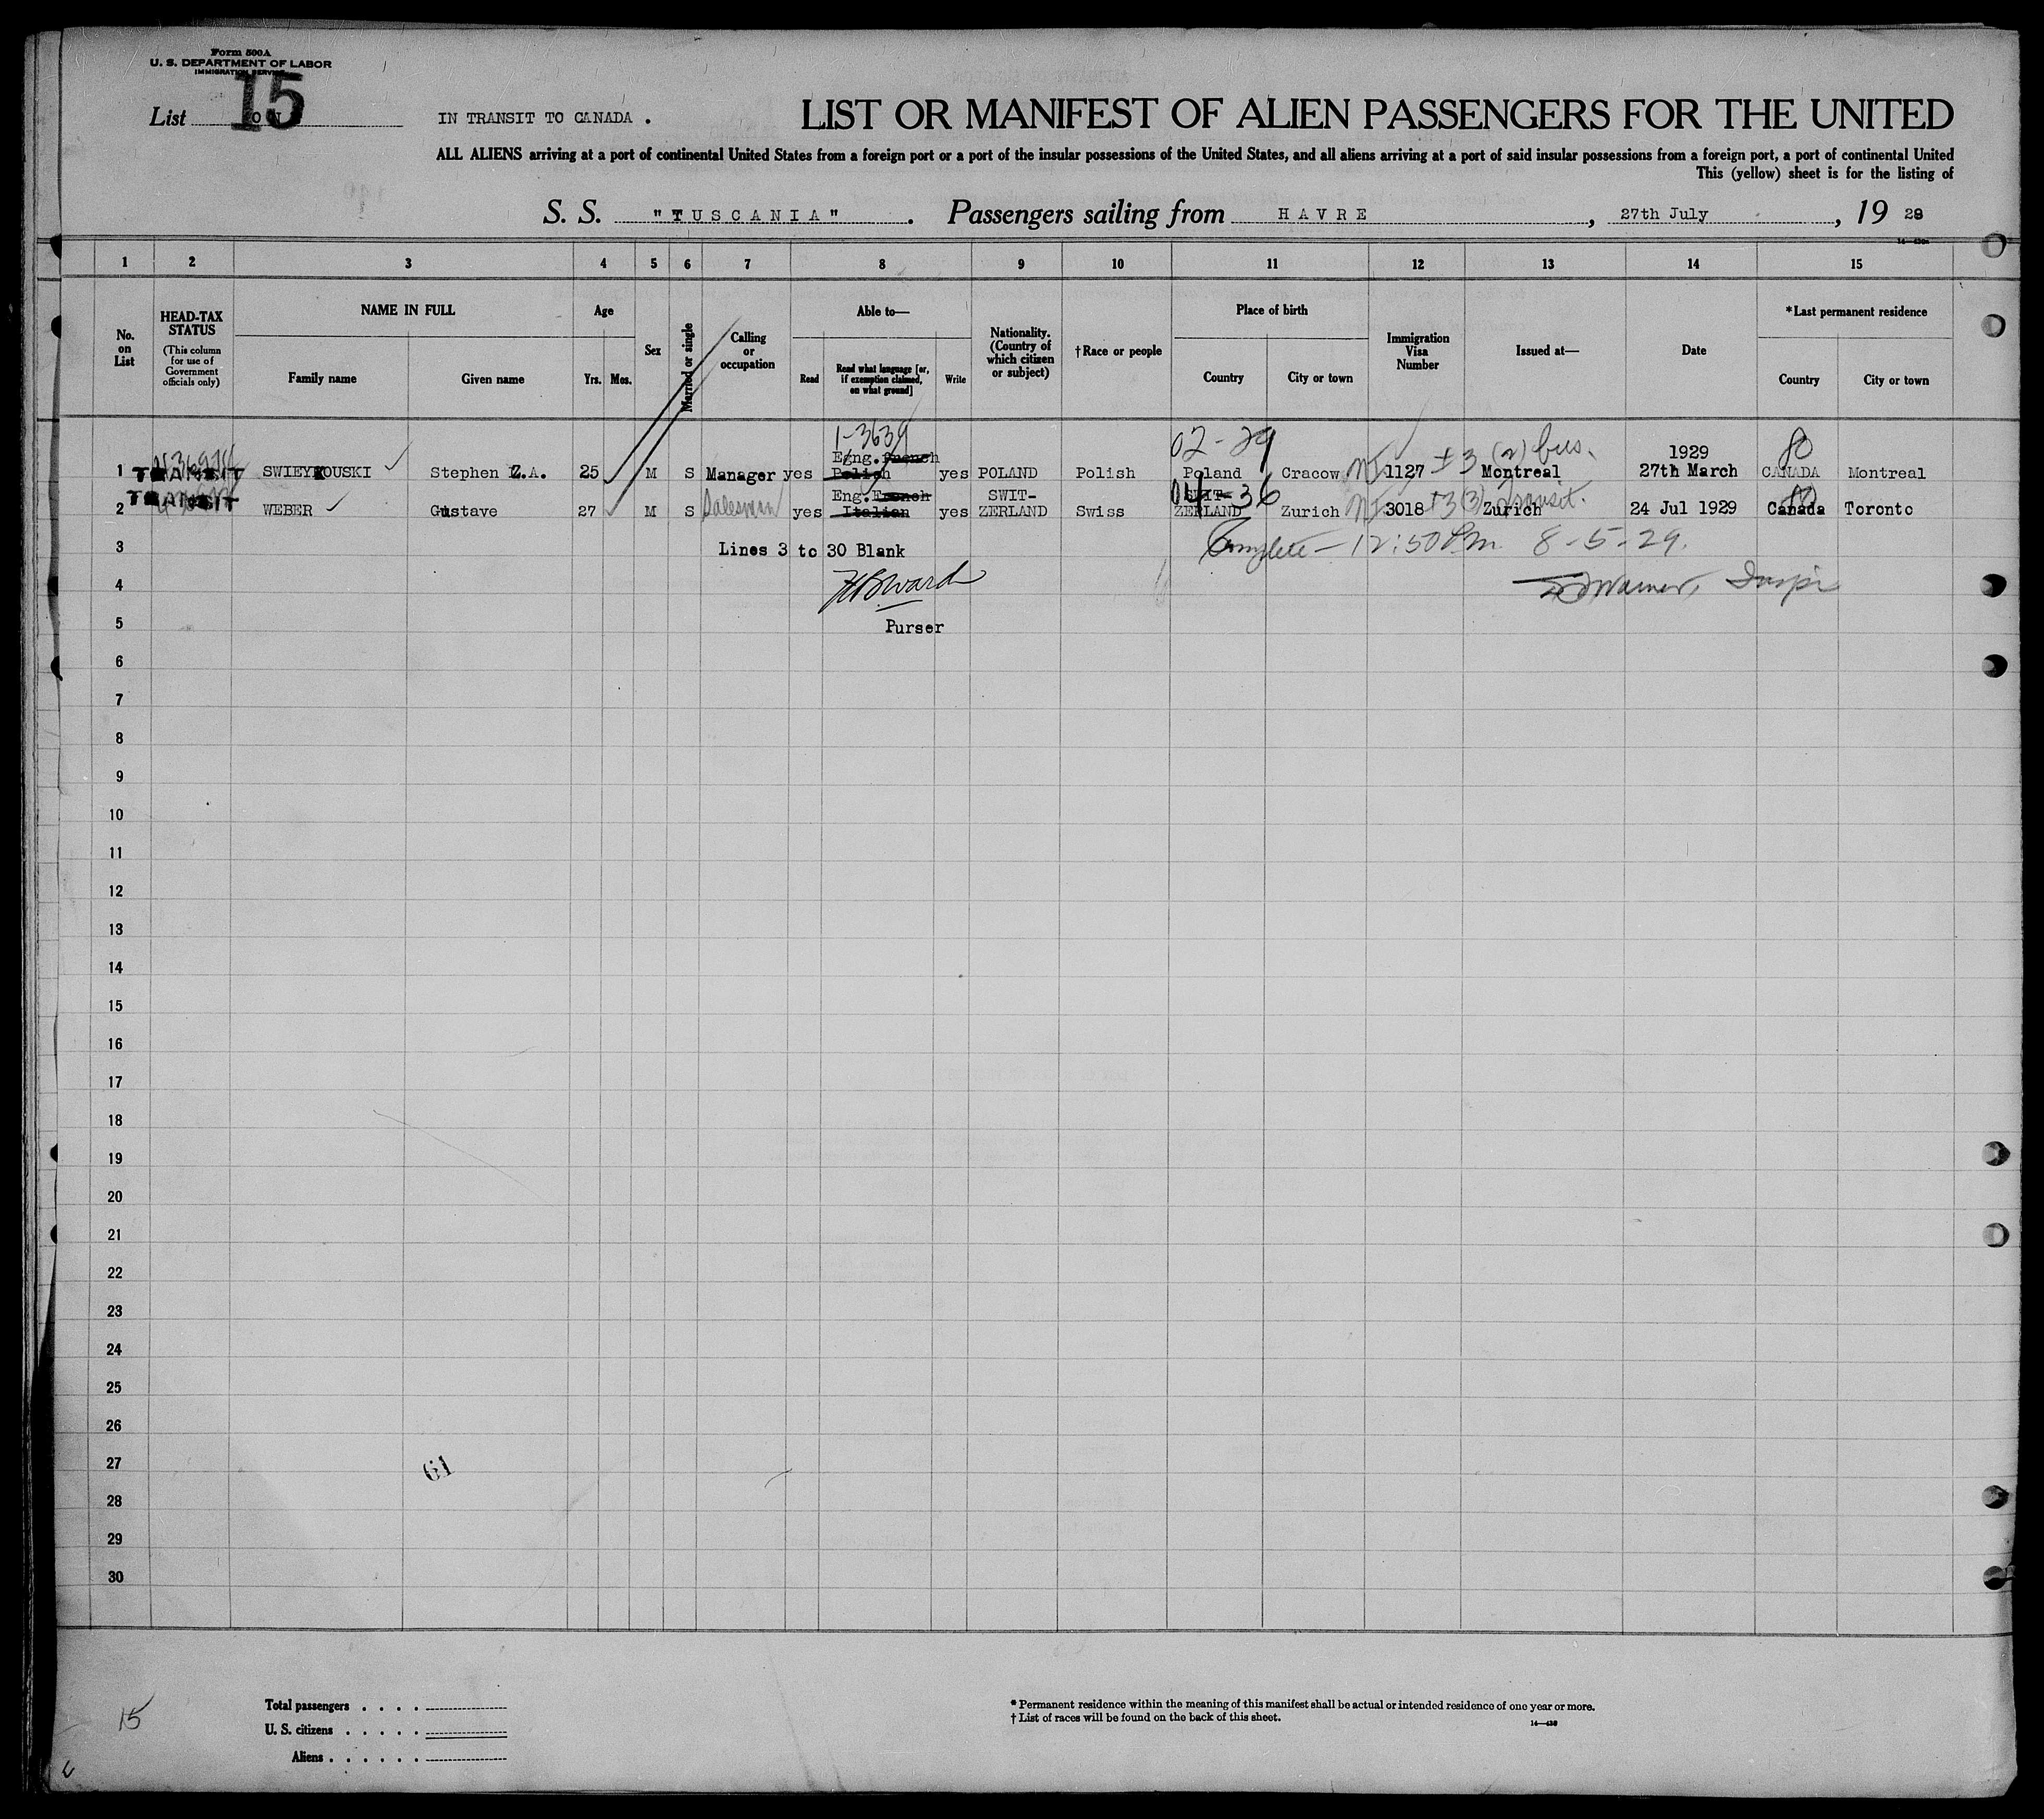 Form 500A
U. S. DEPARTMENT OF LABOR
IMMIGRATION SERVICE
List 15
IN TRANSIT TO CANADA .
LIST OR MANIFEST OF ALIEN PASSENGERS FOR THE UNITED
ALL ALIENS arriving at a port of continental United States from a foreign port or a port of the insular possessions of the United States, and all aliens arriving at a port of said insular possessions from a foreign port, a port of continental United
This (yellow) sheet is for the listing of
S. S. "TUSCANIA" . Passengers sailing from HAVRE , 27th July , 19 29
1 2 3 4 5 6 7 8 9 10 11 12 13 14 15
No. on List
HEAD-TAX STATUS
(This column for use of Government officials only)
NAME IN FULL
Family name
Given name
Age
Yrs. Mos.
Sex
Married or single
Calling or occupation
Able to—
Read
Read what language [or, if exemption claimed, on what ground]
Write
Nationality. (Country of which citizen or subject)
†Race or people
Place of birth
Country
City or town
Immigration Visa Number
Issued at—
Date
*Last permanent residence
Country
City or town
1-3639
02-29
80
1 TRANSIT SWIEYKOUSKI Stephen Z.A. 25 M S Manager yes Egng. French Polish yes POLAND Polish Poland Cracow 1127 ± 3 (2) bus. Montreal 1929 27th March CANADA Montreal
04-36
80
2 TRANSIT WEBER Gustave 27 M S Salesman yes Eng. French Italian yes SWIT- ZERLAND Swiss SWIT- ZERLAND Zurich 3018 ±3 (3) Transit. Zurich 24 Jul 1929 Canada Toronto
3 Lines 3 to 30 Blank Complete — 12:50 P.m. 8-5-29.
4 HBWard Warner, Inspr
5 Purser
6
7
8
9
10
11
12
13
14
15
16
17
18
19
20
21
22
23
24
25
26
27 61
28
29
30
15
Total passengers . . . .
U. S. citizens . . . . .
Aliens . . . . . .
* Permanent residence within the meaning of this manifest shall be actual or intended residence of one year or more.
† List of races will be found on the back of this sheet.
14—430